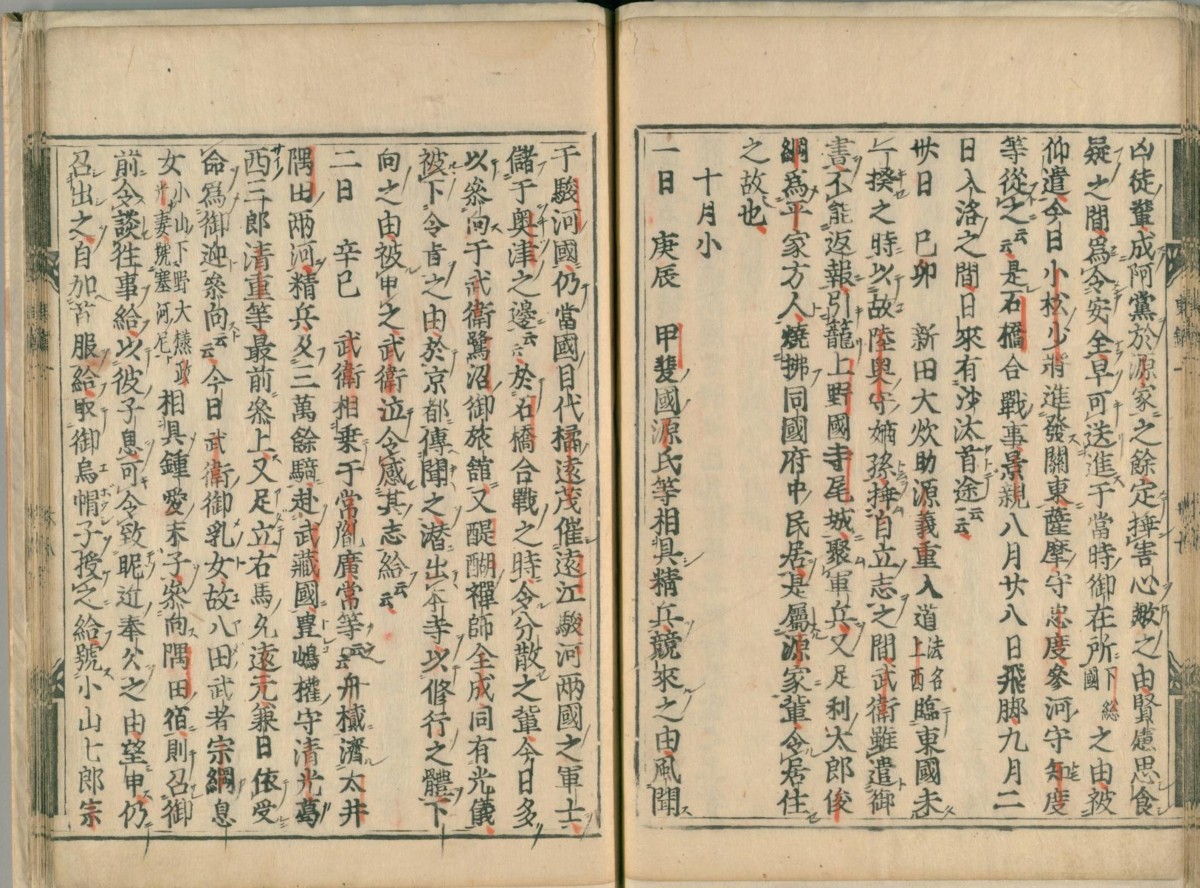 凶徒輩成阿黨於源家之餘定挿害心歟之由賢慮思食
疑之間爲令安全早可送進于當時御在所下総國之由被
仰遣今日小松少將進發關東薩摩守忠度參河守知度
等從之云云是石橋合戰事景親八月廿八日飛脚九月二
日入洛之間日來有沙汰首途云云
卅日 己卯 新田大炊助源義重入道法名上西臨東國未
一揆之時以故陸奥守嫡孫挿自立志之間武衛雖遣御
書不能返報引籠上野國寺尾城聚軍兵又足利太郎俊
綱爲平家方人燒拂同國府中民居是屬源家輩令居住
之故也
十月小
一日 庚辰 甲斐國源氏等相具精兵競來之由風聞
于駿河國仍當國目代橘遠茂催遠江駿河兩國之軍士
儲于奥津之邊云云於石橋合戰之時令分散之輩今日多
以參向于武衛鷺沼御旅舘又醍醐禪師全成同有光儀
被下令旨之由於京都傳聞之潛出本寺以修行之體下
向之由被申之武衛泣令感其志給云云
二日 辛巳 武衛相乗于常胤廣常等云云舟檝濟太井
隅田兩河精兵及三萬餘騎赴武藏國豊嶋權守清光葛
西三郎清重等最前參上又足立右馬允遠元兼日依受
命爲御迎參向云云今日武衛御乳女故八田武者宗綱息
女小山下野大掾政光妻號寒河尼相具鍾愛末子參向隅田宿則召御
前令談往事給以彼子息可令致昵近奉公之由望申仍
召出之自加首服給取御烏帽子授之給號小山七郎宗